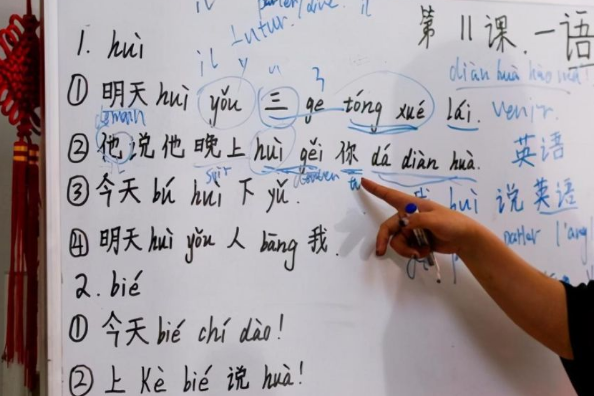 parler/dire il
il futur
第 11 课. 一 语
1. huì
diàn huà hào mǎ
① 明天 huì yǒu 三 ge tóng xué lái.
venir.
demain
② 他 说 他 晚上 huì gěi 你 dá diàn huà.
英语
soir
③ 今天 bú huì 下 yǔ.
huì 说 英语
parler l'angl
④ 明天 huì yǒu 人 bāng 我.
2. bié
① 今天 bié chí dào!
② 上 Kè bié 说 huà!